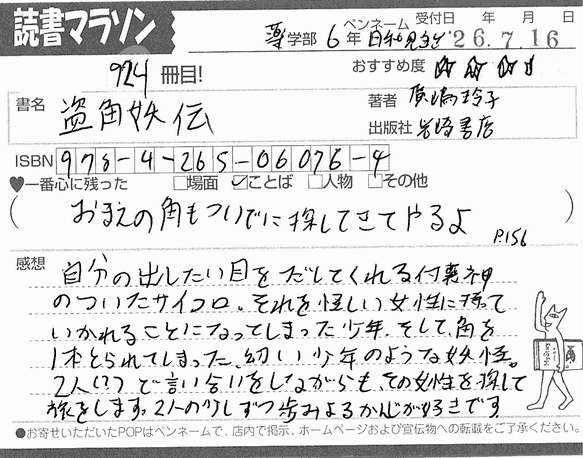 読書マラソン
薬学部 6年 ペンネーム 日和見主ど 受付日 年 月 日
'26.7.16
924冊目!
おすすめ度 ☆☆☆☆
書名 盗角妖伝
著者 廣嶋玲子
出版社 岩崎書店
ISBN 978-4-265-06076-4
♥一番心に残った □場面 ☑ことば □人物 □その他
(おまえの角もついでに探してきてやるよ P.156)
感想
自分の出したい目をだしてくれる付喪神
のついたサイコロ。それを怪しい女性に捨て
いかれることになってしまった少年。そして、角を
1本とられてしまった、幼い少年のような妖怪。
2人(?)で言い合いをしながらも、その女性を探して
旅をします。2人の少しずつ歩みよるかんじが好きです
●お寄せいただいたPOPはペンネームで、店内で掲示、ホームページおよび宣伝物への転載をご了承ください。